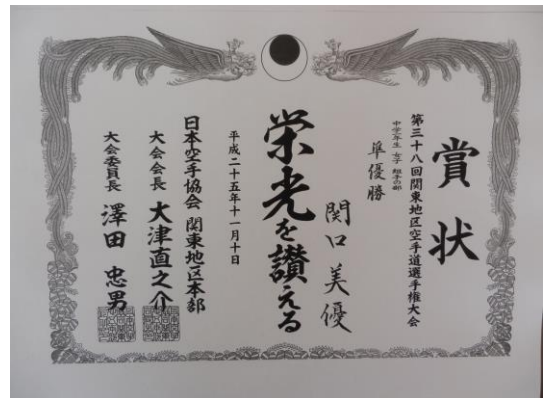 賞状
第三十八回関東地区空手道選手権大会
準優勝
関口美優
栄光を讃える
平成二十五年十一月十日
日本空手協会 関東地区本部
大会会長 大津直之介
大会委員長 澤田忠男